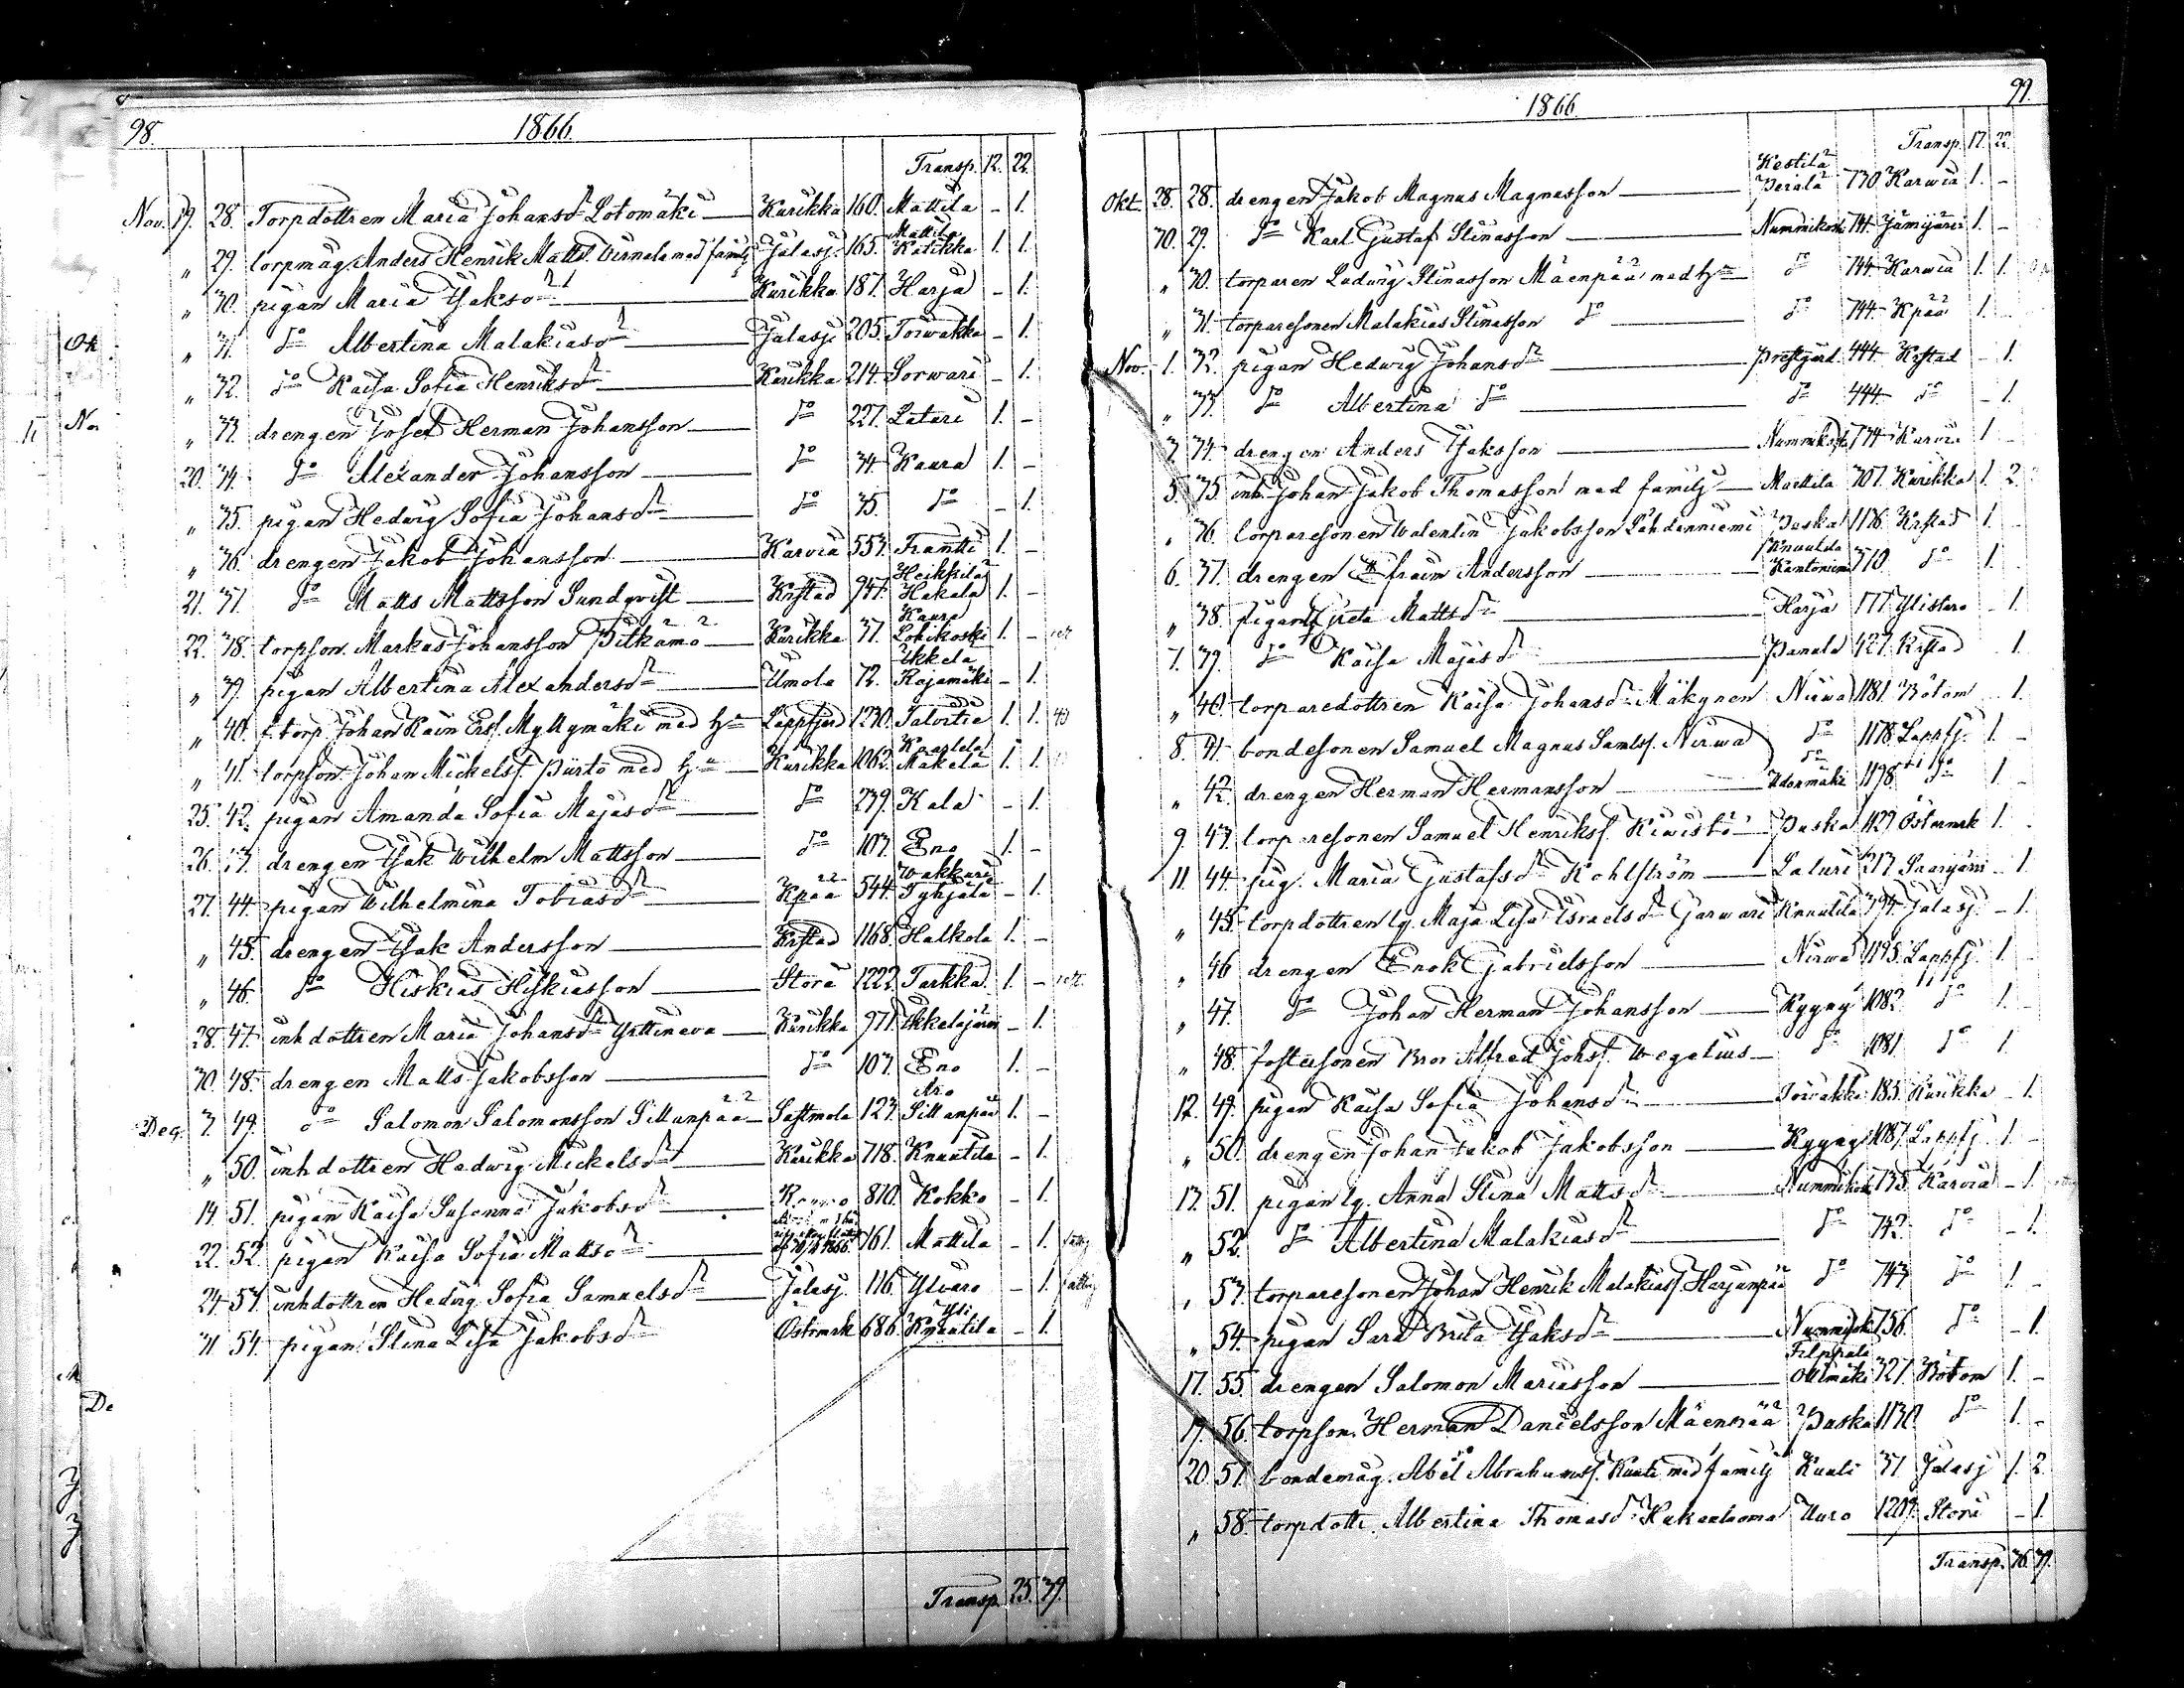 98.
1866.
Transp. 12. 22.
Nov. 19. 28. Torpdottren Maria Johansdr Lotomäki Kurikka 160. Mattila - 1.
Mattila
„ 29. torpmåg. Anders Henrik Matts. med familj Jalasj. 165. Katikka 1. 1.
„ 30. pigan Maria Isaksdr Kurikka 187. Harja - 1.
„ 31. do Albertina Malakiasdr Jalasj. 205. Toiwakka - 1.
„ 32. do Kaisa Sofia Henriksdr Kurikka 214. Sorwari - 1.
„ 33. drengen Josef Herman Johansson do 227. Latari 1. -
20. 34. do Alexander Johansson do 34. Kaura 1. -
„ 35. pigan Hedwig Sofia Johansdr do 35. do - 1.
„ 36. drengen Jakob Johansson Karvia 553. Frantti 1. -
Heikkilä
21. 37. do Matts Mattsson Sundqvist Krstad 947. Hakala 1. -
Kaura
22. 38. torpson. Markus Johansson Pitkämö Kurikka 37. Lohikoski 1. -
Ikkela
„ 39. pigan Albertina Alexandersdr Ilmola 72. Kajamäki - 1.
„ 40. f. torp. Johan Kaim Ers. Myllymäki med h Lappfjerd 1230. Talvitie 1. 1.
Knautila
„ 41. torpson. Johan Mickelss. Piirto med h Kurikka 1062. Mäkelä 1. 1.
25. 42. pigan Amanda Sofia Majasdr do 239. Kala - 1.
26. 43. drengen Isak Wilhelm Mattsson do 107. Eno 1. -
Wakkuri
27. 44. pigan Wilhelmina Tobiasdr Kpää 544. Tyhjälä - 1.
„ 45. drengen Isak Andersson Krstad 1168. Halkola 1. -
„ 46. do Hiskias Hiskiasson Storå 1222. Tarkka. 1. -
28. 47. inhdottren Maria Johansdr Yrttineva Kurikka 971. Ikkelajärvi - 1.
30. 48. drengen Matts Jakobsson do 107. Eno 1. -
Aro
Dec. 3. 49. do Salomon Salomonsson Sillanpää Sastmola 123. Sillanpää 1. -
„ 50. inhdottren Hedwig Mickelsdr Kurikka 718. Knuutila - 1.
14. 51. pigan Kaisa Susanna Jakobsdr 810. Kokko - 1.
22. 52. pigan Kaisa Sofia Mattsdr 161. Mattila - 1.
24. 53. inhdottren Hedvig Sofia Samuelsdr Jalasj. 116. Ylivaro - 1.
Yli
31. 54. pigan Stina Lisa Jakobsdr Östermrk 686. Knuutila - 1.
Transp. 25. 39.
99.
1866.
Transp. 17. 22.
Kestilä
Okt. 28. 28. drengen Jakob Magnus Magnusson Peiala 770 Karwia 1. -
30. 29. do Karl Gustaf Stinasson Nummikoski 741. Jämijärvi 1. -
„ 30. torparen Ludwig Stinasson Mäenpää med h do 744. Karwia 1. 1.
„ 31. torparesonen Malakias Stinasson do do 744. Kpää 1.
Nov. 1. 32. pigan Hedwig Johansdr Prestgård. 444. Krstad - 1.
„ 33. do Albertina do do 444. do - 1.
3. 34. drengen Anders Isaksson Nummikoski 734. Karvia 1.
5. 35. inh. Johan Jakob Thomasson med familj Mattila 707. Kurikka 1. 2.
„ 36. torparesonen Walentin Jakobsson Lähdenniemi Paska 1176. Krstad 1. -
Knuutila
6. 37. drengen Efraim Andersson Kantoniemi 710. do 1.
„ 38. pigan Greta Mattsdr Harja 177. Ylistaro - 1.
7. 39. do Kaisa Majasdr Panula 427. Krstad 1.
„ 40. torparedottren Kaisa Johansdr Mäkynen Nirwa 1181. Bötom 1.
8. 41. bondesonen Samuel Magnus Samlss. Nirwa do 1178. Lappfj. 1. -
do
„ 42. drengen Herman Hermansson 1198. do 1.
9. 43. torparesonen Samuel Henrikss. Kiwistö Paska 1129 Östermrk 1.
11. 44. pig. Maria Gustafsdr Kohlström Laluri 217. - 1.
„ 45. torpdottren Maja Lisa Israelsdr Knuutila 794. Jalasj. - 1.
„ 46. drengen Enok Gabrielsson Nirwa 1195. Lappfj. 1. -
„ 47. do Johan Herman Johansson Kyyny 1082. do 1. -
„ 48. fostersonen Bror Alfred Johs. Wegelius do 1081. do 1
12. 49. pigan Kaisa Sofia Johansdr Toiwakka 185. Kurikka - 1.
„ 50. drengen Johan Jakob Jakobsson Kyyny 1087. Lappfj. 1. -
13. 51. pigan Anna Stina Mattsdr Nummikoski 735. Karvia - 1.
„ 52. do Albertina Malakiasdr do 742. do - 1.
„ 53. torparesonen Johan Henrik Malakiass. Harjunpää do 743. do 1. -
„ 54. pigan Sara Brita Isaksdr Nummikoski 756. do - 1.
Filppula
17. 55. drengen Salomon Mariasson Ollimäki 327. Bötom 1. -
19. 56. torpson. Herman Danielsson Mäenpää Paska 1130. do 1. -
20. 57. bondemåg. Abel Abrahamss. Kuuli med familj Kuuli 37. Jalasj 1. 2.
„ 58. torpdott. Albertina Thomasdr Uuro 1207. Storå - 1.
Transp. 36. 39.